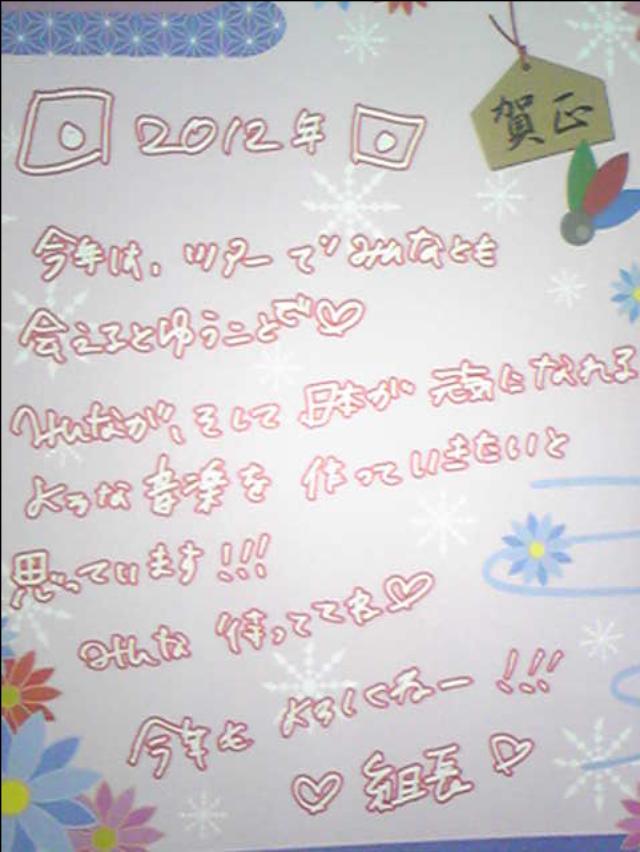 賀正
2012年
今年は、ツアーでみんなとも
会えるとゆうことで♡
みんなが、そして日本が元気になれる
ような音楽を作っていきたいと
思っています!!!
みんな待っててね♡
今年もよろしくねー!!!
♡組長♡